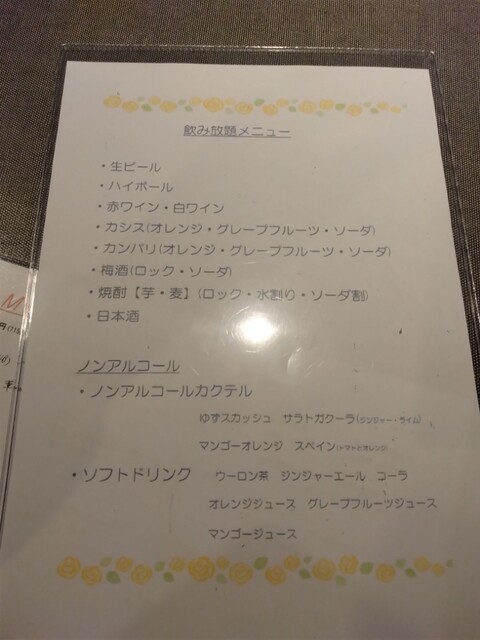 飲み放題メニュー
・生ビール
・ハイボール
・赤ワイン・白ワイン
・カシス(オレンジ・グレープフルーツ・ソーダ)
・カンパリ(オレンジ・グレープフルーツ・ソーダ)
・梅酒(ロック・ソーダ)
・焼酎【芋・麦】(ロック・水割り・ソーダ割)
・日本酒
ノンアルコール
・ノンアルコールカクテル
ゆずスカッシュ サラトガクーラ(ジンジャー・ライム)
マンゴーオレンジ スペイン(トマトとオレンジ)
・ソフトドリンク ウーロン茶 ジンジャーエール コーラ
オレンジジュース グレープフルーツジュース
マンゴージュース